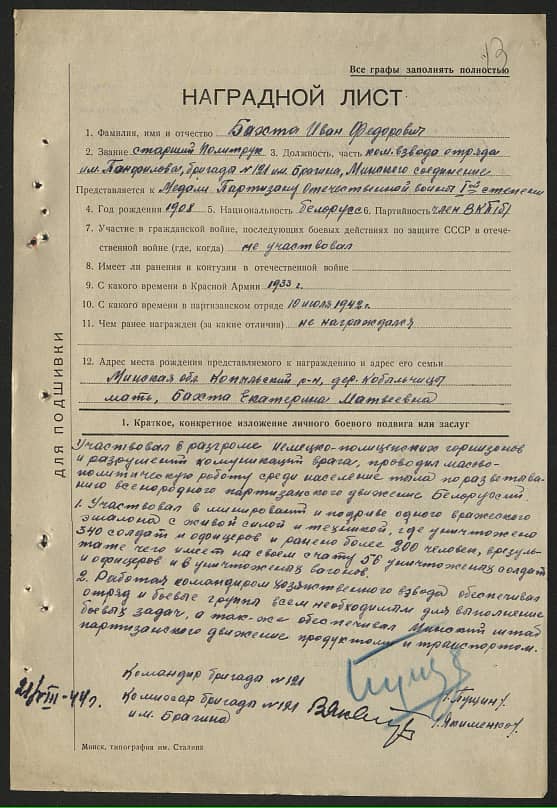 13
Все графы заполнять полностью
НАГРАДНОЙ ЛИСТ
1. Фамилия, имя и отчество Бахта Иван Федорович
2. Звание старший политрук 3. Должность, часть ком. взвода отряда
им. Панфилова, бригада №121 им. Брагина, Минского соединение
Представляется к Медали Партизану Отечественной войны I степени
4. Год рождения 1908 5. Национальность белорусс 6. Партийность член ВКП(б)
7. Участие в гражданской войне, последующих боевых действиях по защите СССР и отече-
ственной войне (где, когда) не участвовал
8. Имеет ли ранения и контузии в отечественной войне
9. С какого времени в Красной Армии 1933 г.
10. С какого времени в партизанском отряде 10 июля 1942 г.
11. Чем ранее награжден (за какие отличия) не награждался
12. Адрес места рождения представляемого к награждению и адрес его семьи
Минская обл. Копыльский р-н, дер. Кобыльчицы
мать, Бахта Екатерина Матвеевна
ДЛЯ ПОДШИВКИ
1. Краткое, конкретное изложение личного боевого подвига или заслуг
Участвовал в разгроме немецко-полицейских горнизонов
и разрушений комуникаций врага, проводил масово-
политическую работу среди население тыла по разветыва-
нию всенародного партизанского движение Белоруссии.
1. Участвовал в минировании и подриве одного вражеского
эшалона с живой силой и техникой, где уничтожено
340 солдат и офицеров и ранено более 200 человек, в резуль-
тате чего имеет на своем счету 56 уничтоженых солдат
и офицеров и 8 уничтоженых вагонов.
2. Работая командиром хозяйственного взвода обеспечивал
отряд и боевые группы всем необходимым для выполнение
боевых задач, а так-же обеспечивал Минский штаб
партизанского движение продуктоми и транспортом.
Командир бригады №121
/Пущин/.
21/VIII-44 г.
Комисар бригады №121
им. Брагина
/Якименко/.
Минск, типография им. Сталина